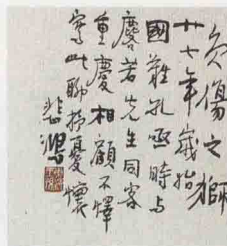 負傷之獅
廿七年歲始
國難孔亟時与
麐若先生同客
重慶相顧不懌
寫此聊抒憂懷
悲鴻